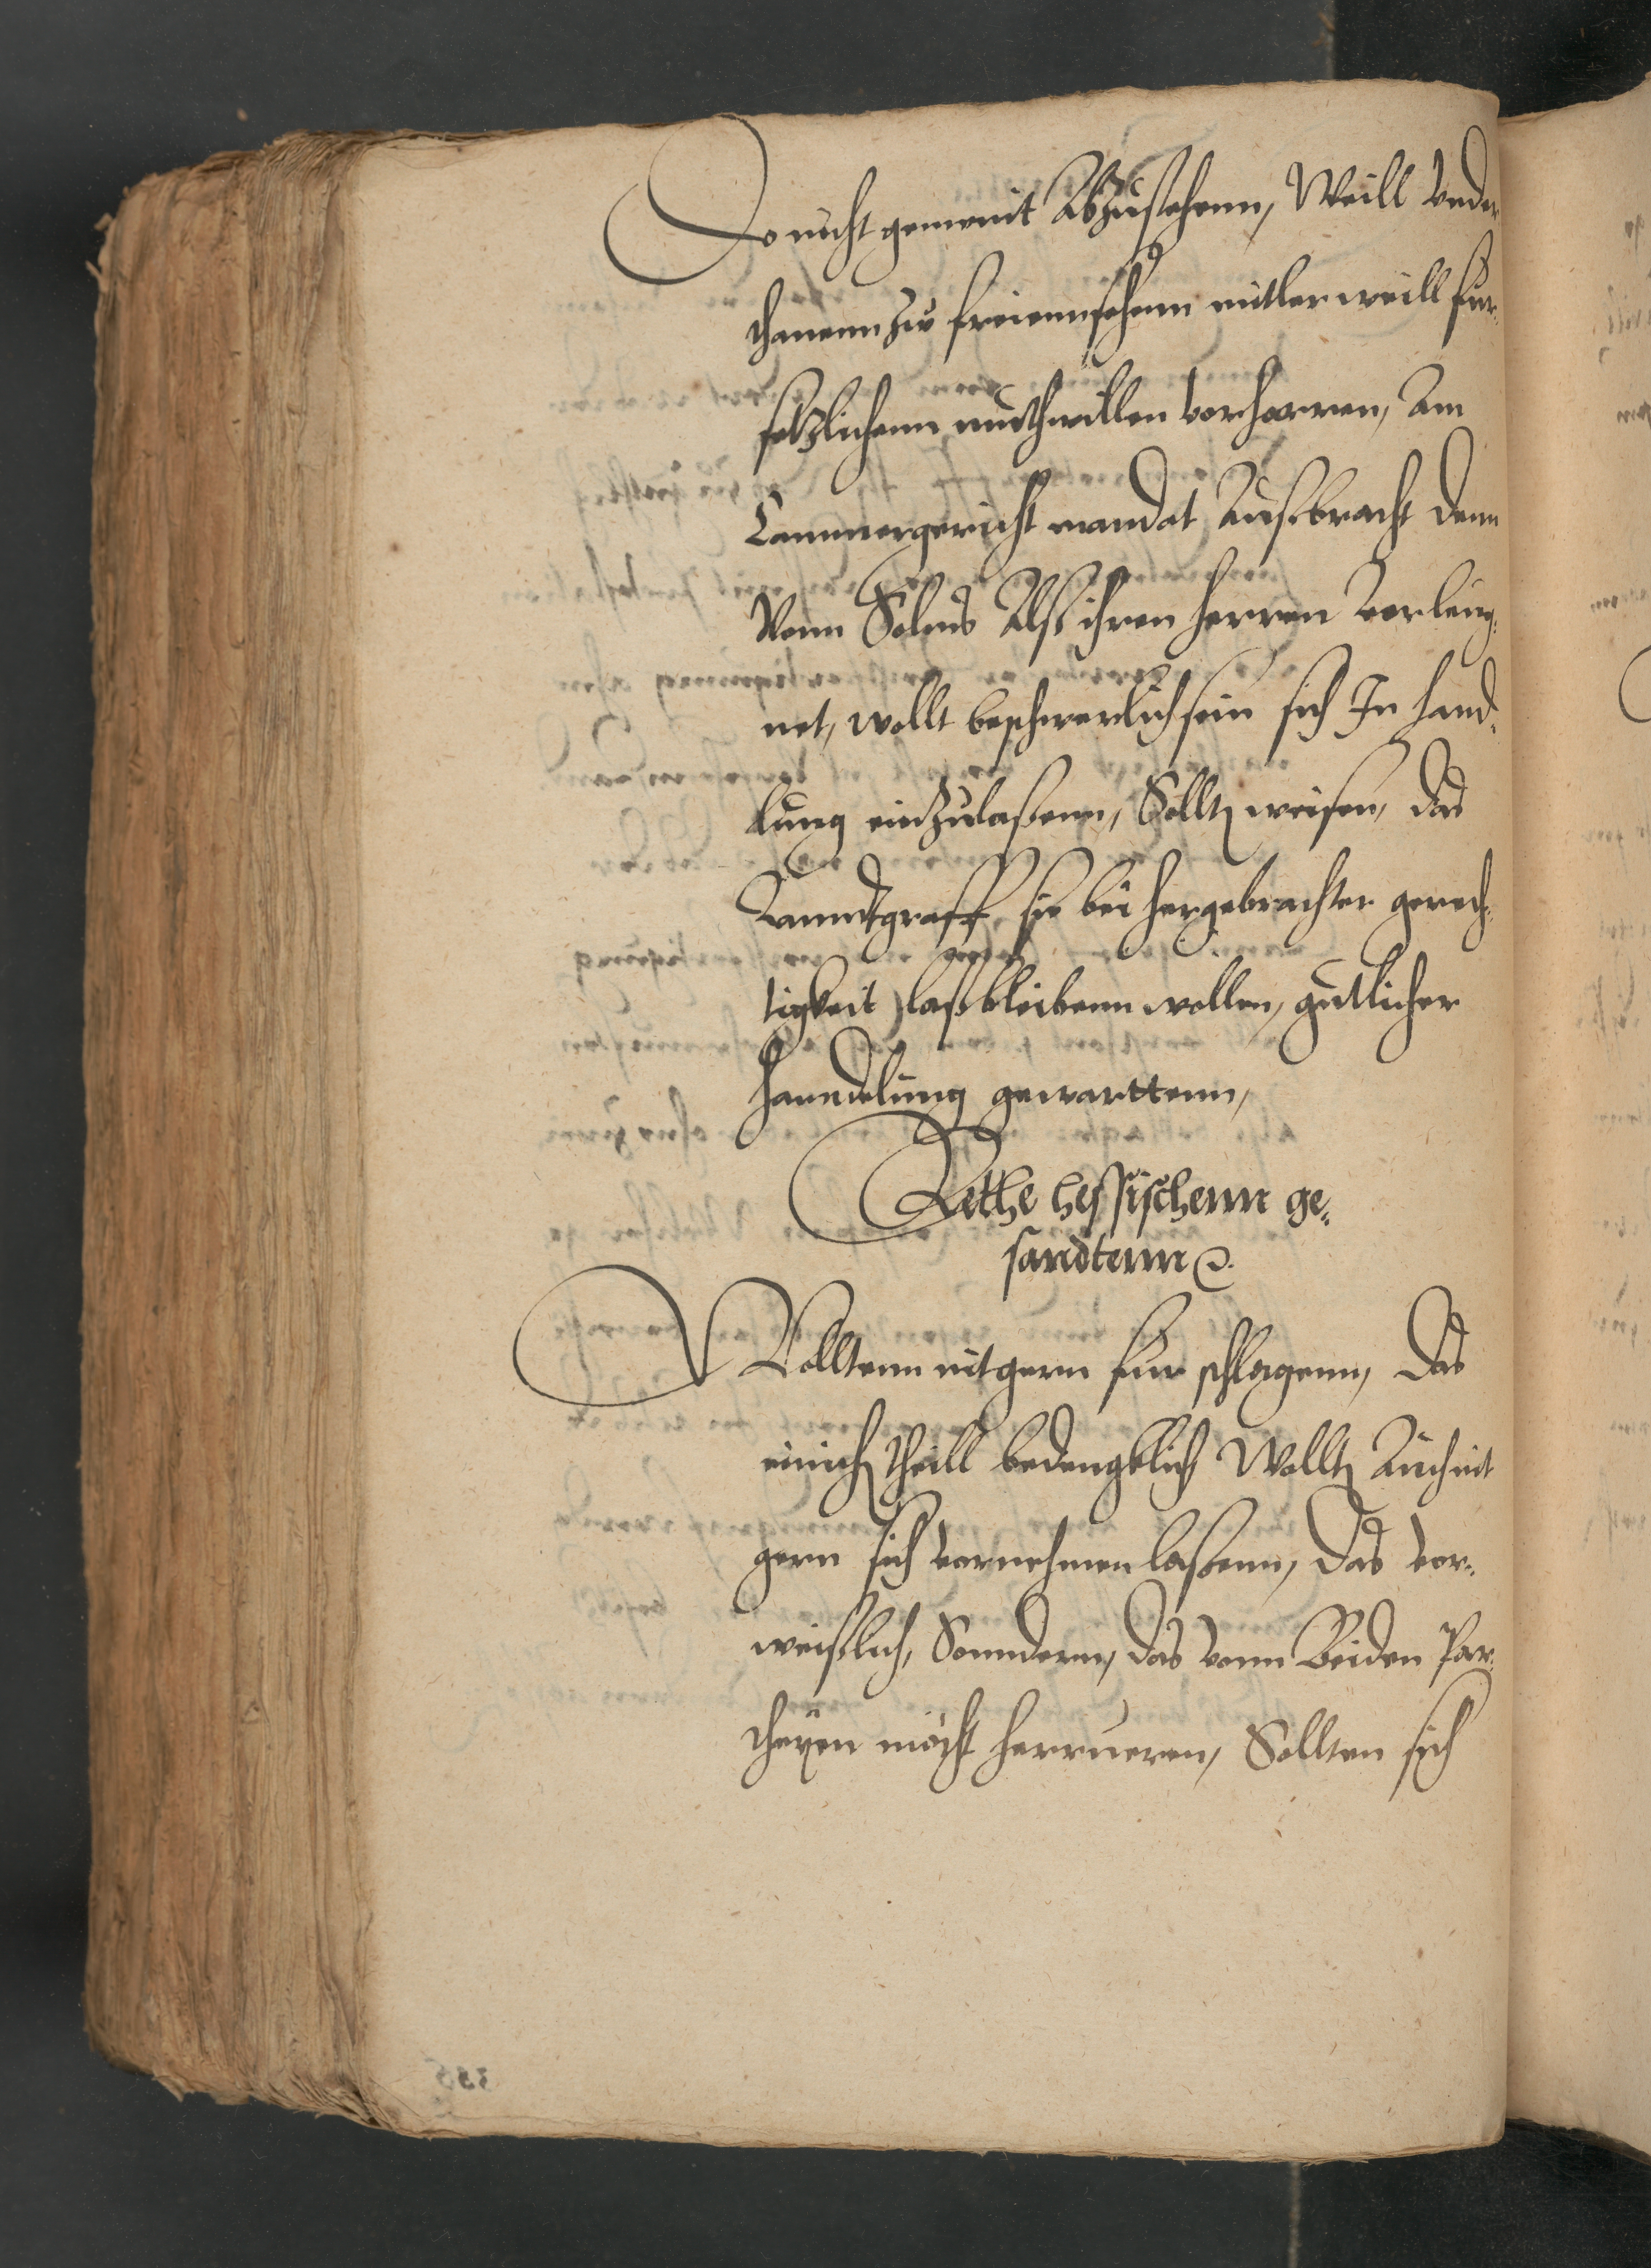 Do nicht gemeint Abzustehenn, Weill Under
thanenn zu freiennsehenn mitler weill fur¬
setzlichenn muthwillen vorharren, Am
Cammergericht mandat Ausbracht denn
Vonn Solms Alß ihren herren verleug¬
net, wollt beschwerlich sein sich In hand¬
lung einzulaßenn, Sollt weisen, das
Lanndtgraff, sie bei hergebrachter gerech¬
tigkeit laß bleibenn wollen, gutlicher
hanndelung gewarttenn,
Rethe hessischenn ge¬
sandtenn
Wolltenn nit gern fur schlagenn, Das
einich theill bedengklich Wollt Auch nit
gern sich vornehmen laßenn, Das vor¬
weißlich, Sonndern, das vonn Beiden Par¬
theyen möcht herrueren, Sollten sich